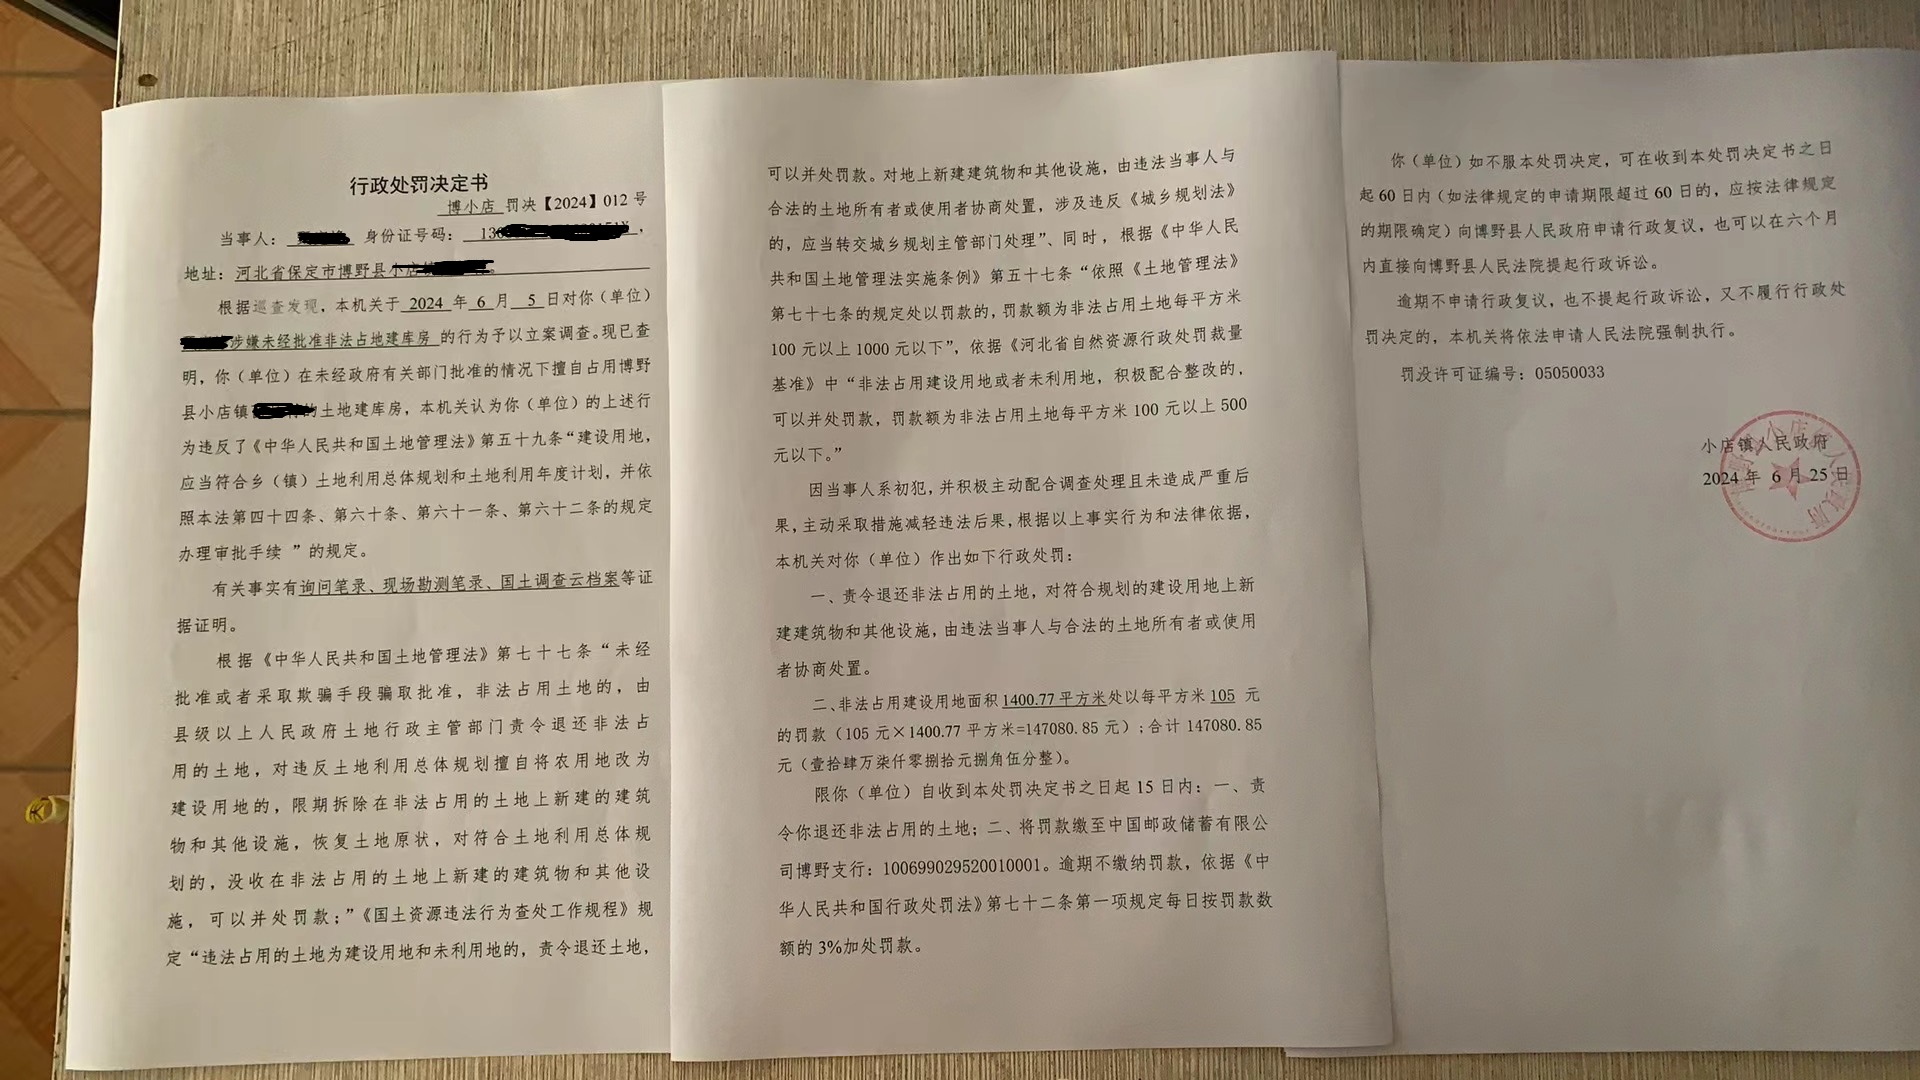 行政处罚决定书
博小店 罚决【2024】012 号
当事人： 身份证号码： 13
地址： 河北省保定市博野县小店
根据巡查发现，本机关于 2024 年 6 月 5 日对你（单位）
涉嫌未经批准非法占地建库房 的行为予以立案调查。现已查
明，你（单位）在未经政府有关部门批准的情况下擅自占用博野
县小店镇 的土地建库房，本机关认为你（单位）的上述行
为违反了《中华人民共和国土地管理法》第五十九条“建设用地，
应当符合乡（镇）土地利用总体规划和土地利用年度计划，并依
照本法第四十四条、第六十条、第六十一条、第六十二条的规定
办理审批手续 ”的规定。
有关事实有询问笔录、现场勘测笔录、国土调查云档案等证
据证明。
根据《中华人民共和国土地管理法》第七十七条“未经
批准或者采取欺骗手段骗取批准，非法占用土地的，由
县级以上人民政府土地行政主管部门责令退还非法占
用的土地，对违反土地利用总体规划擅自将农用地改为
建设用地的，限期拆除在非法占用的土地上新建的建筑
物和其他设施，恢复土地原状，对符合土地利用总体规
划的，没收在非法占用的土地上新建的建筑物和其他设
施，可以并处罚款；”《国土资源违法行为查处工作规程》规
定“违法占用的土地为建设用地和未利用地的，责令退还土地，
可以并处罚款。对地上新建建筑物和其他设施，由违法当事人与
合法的土地所有者或使用者协商处置，涉及违反《城乡规划法》
的，应当转交城乡规划主管部门处理”、同时，根据《中华人民
共和国土地管理法实施条例》第五十七条“依照《土地管理法》
第七十七条的规定处以罚款的，罚款额为非法占用土地每平方米
100 元以上 1000 元以下”，依据《河北省自然资源行政处罚裁量
基准》中“非法占用建设用地或者未利用地，积极配合整改的，
可以并处罚款，罚款额为非法占用土地每平方米 100 元以上 500
元以下。”
因当事人系初犯，并积极主动配合调查处理且未造成严重后
果，主动采取措施减轻违法后果，根据以上事实行为和法律依据，
本机关对你（单位）作出如下行政处罚：
一、责令退还非法占用的土地，对符合规划的建设用地上新
建建筑物和其他设施，由违法当事人与合法的土地所有者或使用
者协商处置。
二、非法占用建设用地面积 1400.77 平方米处以每平方米 105 元
的罚款（105 元×1400.77 平方米=147080.85 元）；合计 147080.85
元（壹拾肆万柒仟零捌拾元捌角伍分整）。
限你（单位）自收到本处罚决定书之日起 15 日内：一、责
令你退还非法占用的土地；二、将罚款缴至中国邮政储蓄有限公
司博野支行：100699029520010001。逾期不缴纳罚款，依据《中
华人民共和国行政处罚法》第七十二条第一项规定每日按罚款数
额的 3%加处罚款。
你（单位）如不服本处罚决定，可在收到本处罚决定书之日
起 60 日内（如法律规定的申请期限超过 60 日的，应按法律规定
的期限确定）向博野县人民政府申请行政复议，也可以在六个月
内直接向博野县人民法院提起行政诉讼。
逾期不申请行政复议，也不提起行政诉讼，又不履行行政处
罚决定的，本机关将依法申请人民法院强制执行。
罚没许可证编号：05050033
小店镇人民政府
2024 年 6 月 25 日